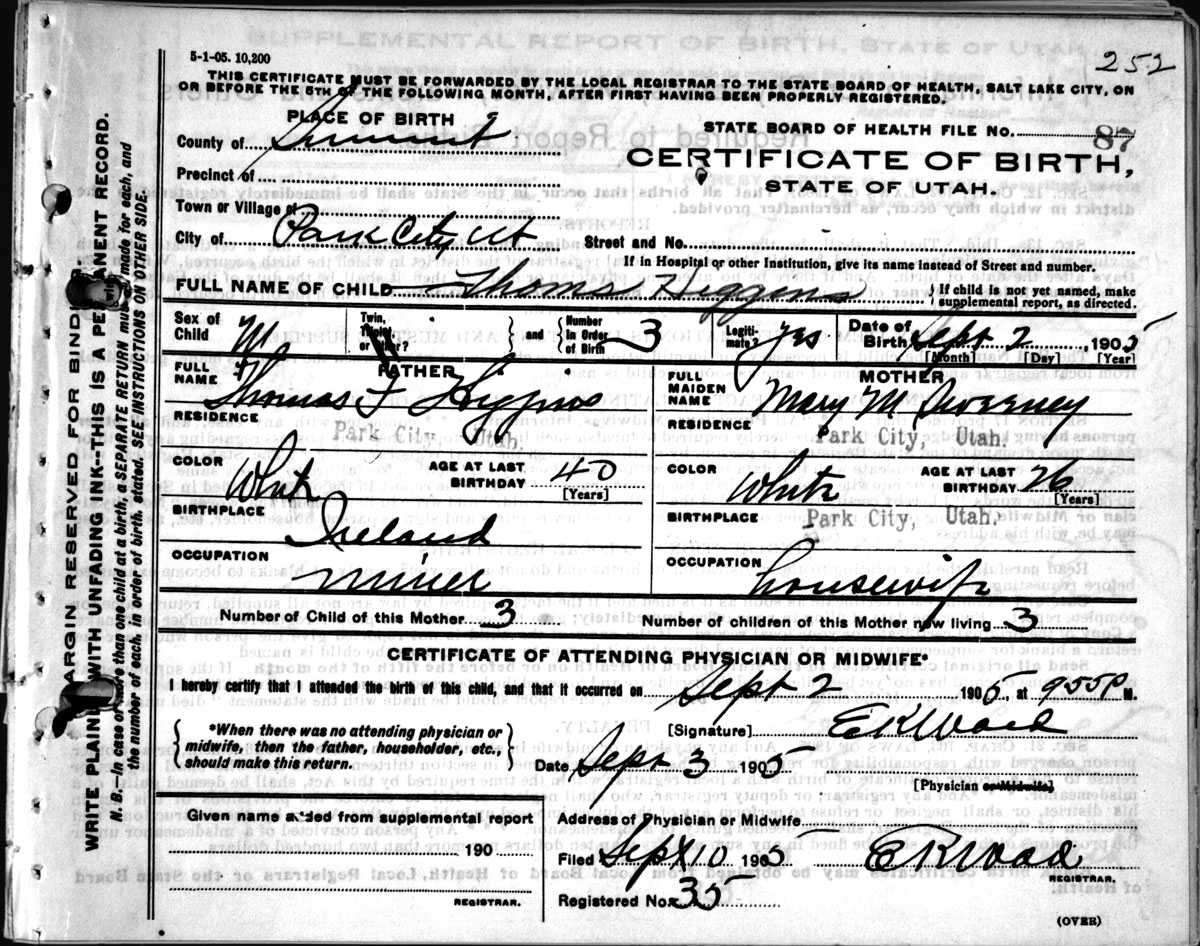 5-1-05. 10,200
252
THIS CERTIFICATE MUST BE FORWARDED BY THE LOCAL REGISTRAR TO THE STATE BOARD OF HEALTH, SALT LAKE CITY, ON
OR BEFORE THE 5TH OF THE FOLLOWING MONTH, AFTER FIRST HAVING BEEN PROPERLY REGISTERED.
PLACE OF BIRTH
STATE BOARD OF HEALTH FILE NO. 87
County of Summit
CERTIFICATE OF BIRTH,
Precinct of
STATE OF UTAH.
Town or Village of
City of Park City Ut Street and No.
If in Hospital or other Institution, give its name instead of Street and number.
FULL NAME OF CHILD Thomas Higgins { If child is not yet named, make
supplemental report, as directed.
Sex of Child M Twin, Triplet or other? } and { Number in Order of Birth 3 Legitimate? Yes Date of Birth Sept 2 1905
[Month] [Day] [Year]
FATHER
FULL NAME Thomas F Higgins
RESIDENCE
Park City, Utah.
COLOR White AGE AT LAST BIRTHDAY 40
[Years]
BIRTHPLACE
Ireland
OCCUPATION
Miner
MOTHER
FULL MAIDEN NAME Mary M Sweeney
RESIDENCE
Park City, Utah.
COLOR White AGE AT LAST BIRTHDAY 26
[Years]
BIRTHPLACE Park City, Utah.
OCCUPATION
housewife
Number of Child of this Mother 3 Number of children of this Mother now living 3
CERTIFICATE OF ATTENDING PHYSICIAN OR MIDWIFE*
I hereby certify that I attended the birth of this child, and that it occurred on Sept 2 1905. at 955 P. M.
*When there was no attending physician or
midwife, then the father, householder, etc.,
should make this return.
[Signature] E K Ward
Date Sept 3 1905
[Physician or Midwife]
Given name added from supplemental report
190
REGISTRAR.
Address of Physician or Midwife
Filed Sept 10 1905 E K Ward
REGISTRAR.
Registered No. 35
(OVER)
MARGIN RESERVED FOR BINDING.
WRITE PLAINLY WITH UNFADING INK--THIS IS A PERMANENT RECORD.
N. B.--In case of more than one child at a birth, a SEPARATE RETURN must be made for each, and
the number of each, in order of birth, stated. SEE INSTRUCTIONS ON OTHER SIDE.